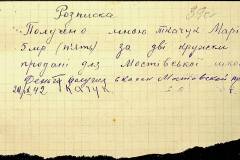 Розписка
Получено мною Ткачук Марі
5 мр (п'ять) за дві кружки
продані для Мостівської шко
Деньги получил сполна Мостовской
20/X 42 Ткачук